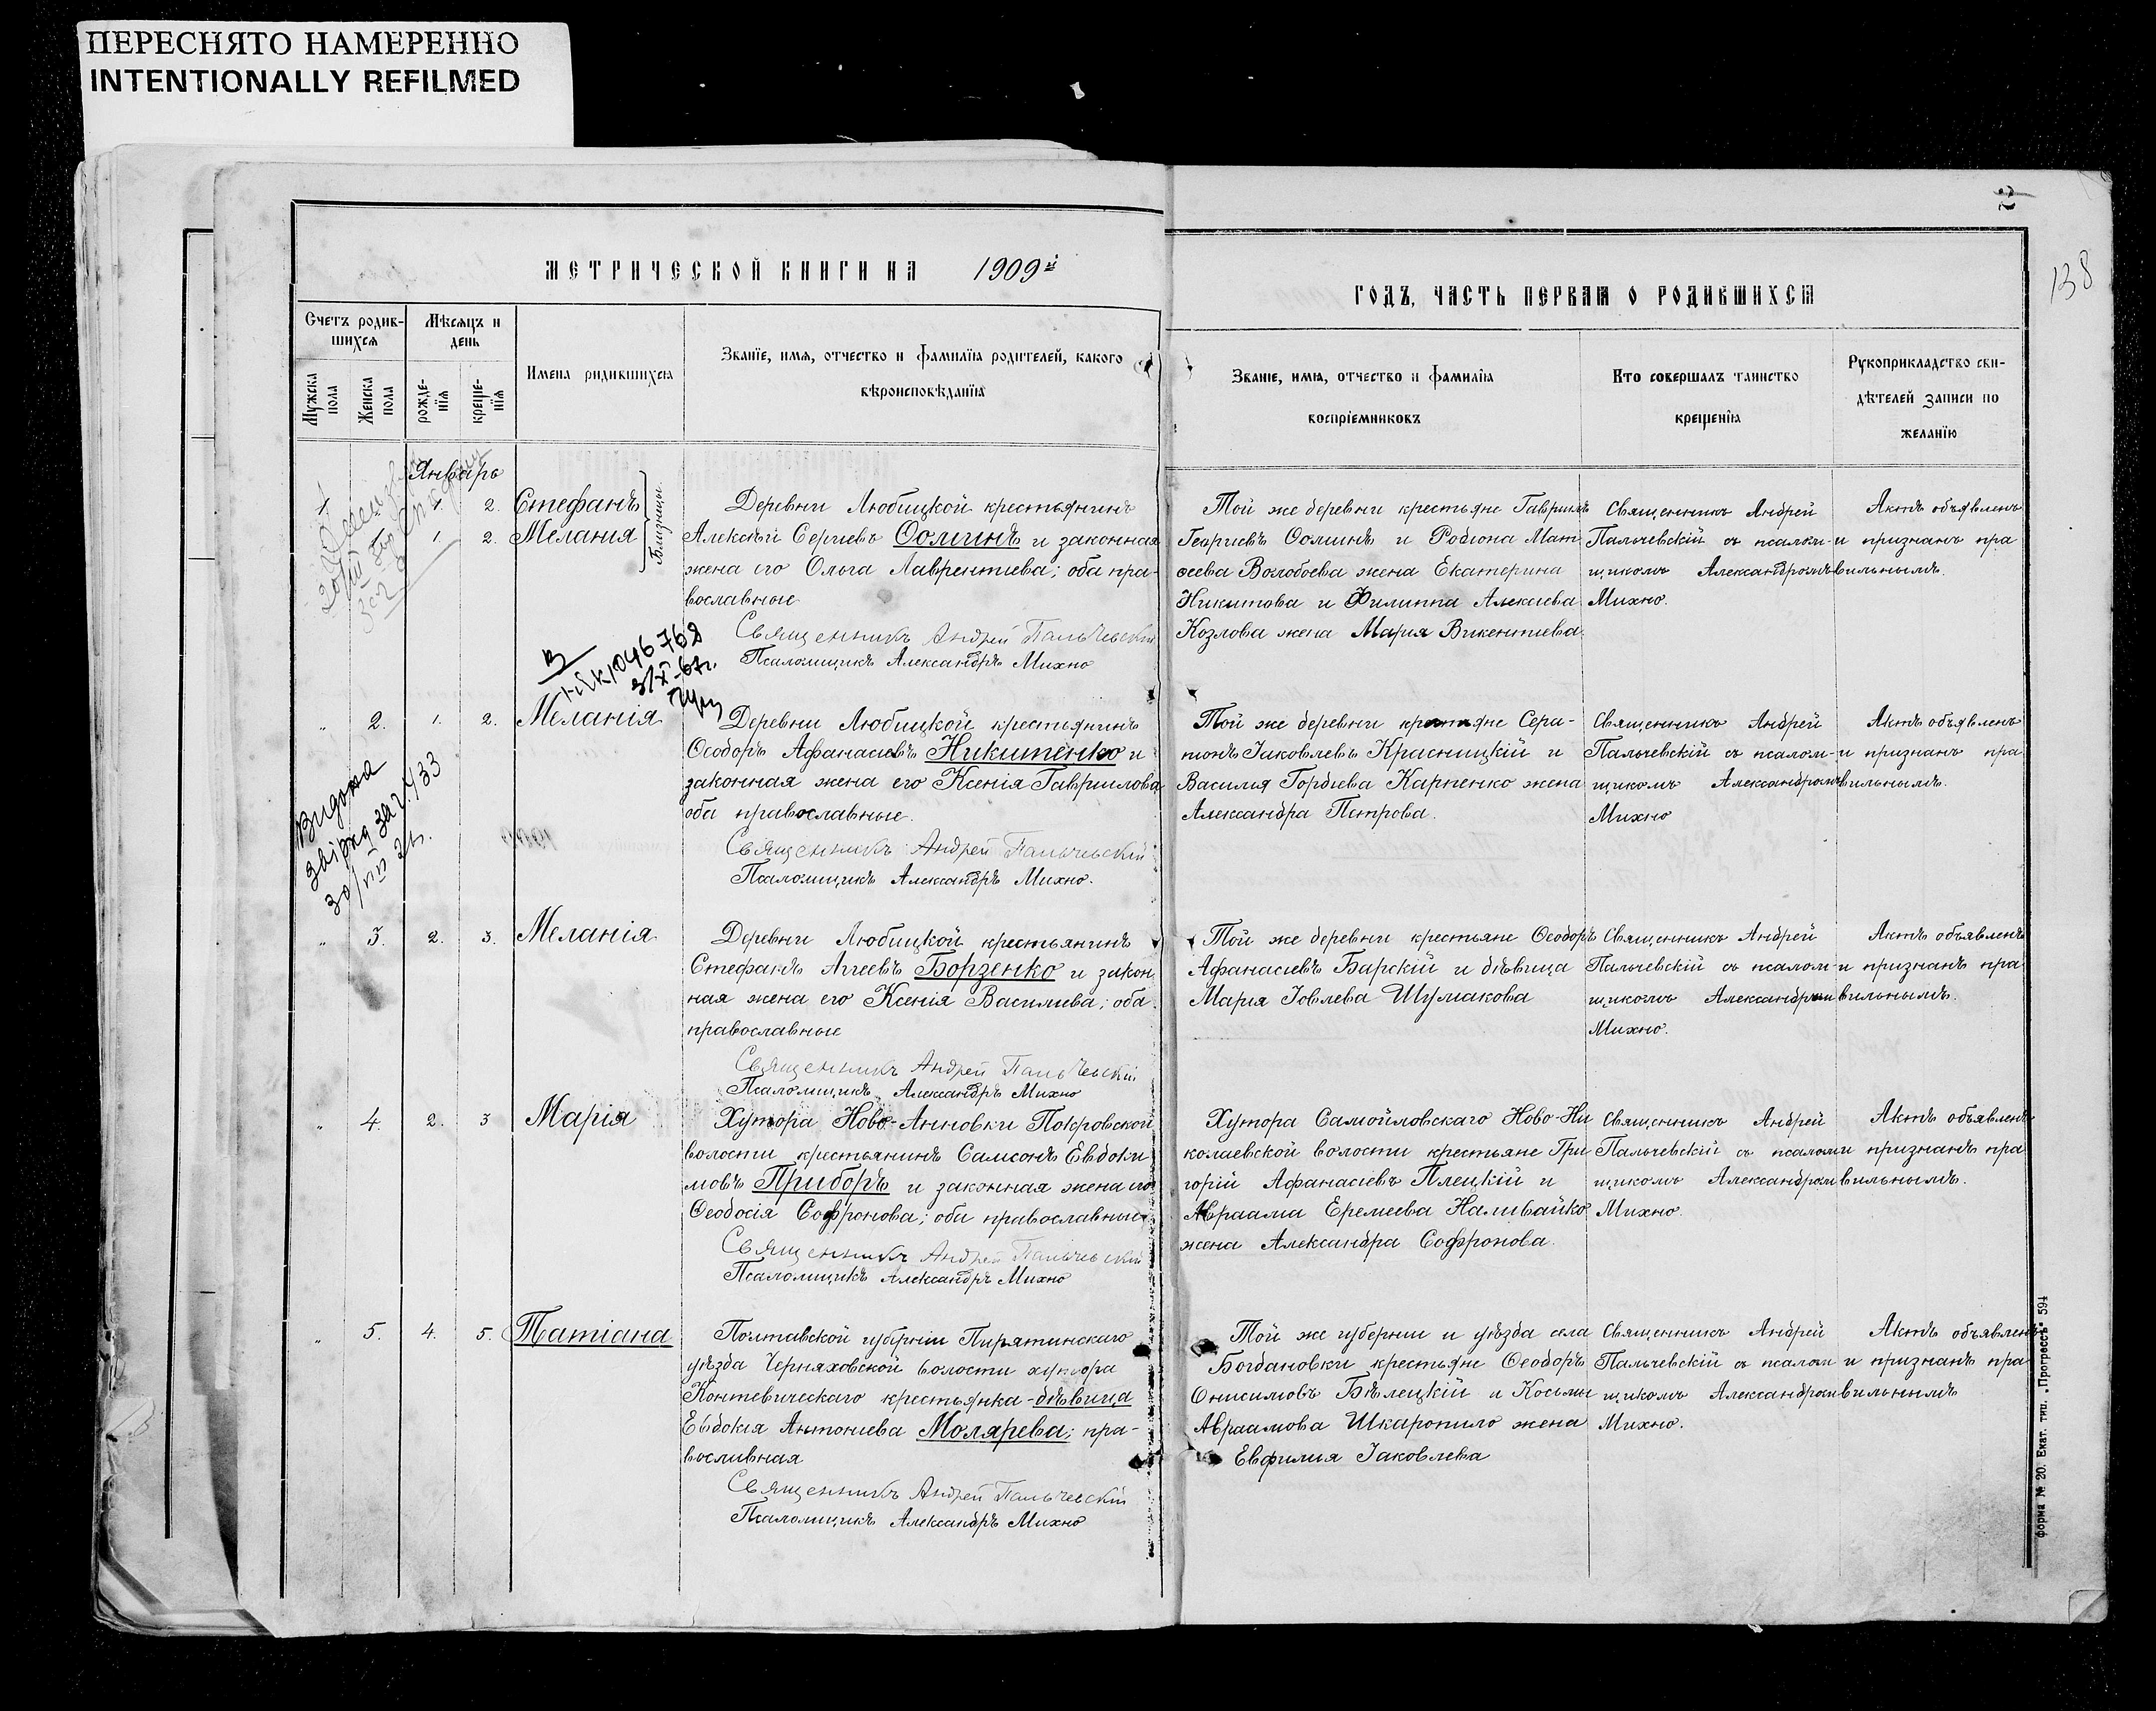 ПЕРЕСНЯТО НАМЕРЕННО
INTENTIONALLY REFILMED
138
МЕТРИЧЕСКОЙ КНИГИ НА 1909й
ГОДЪ, ЧАСТЬ ПЕРВАЯ О РОДИВШИХСЯ
Счетъ родив-
шихся
Мужска пола
Женска пола
Мѣсяцъ и
день
рожде-
нія
креще-
нія
Имена родившихся
Званіе, имя, отчество и фамилія родителей, какого
вѣроисповѣданія
Званіе, имя, отчество и фамилія
воспріемниковъ
Кто совершалъ таинство
крещенія
Рукоприкладство сви-
дѣтелей записи по
желанію
Январь
1. 2. Стефанъ
1. 2. Меланія
Близнцы.
Деревни Любицкой крестьянинъ
Алексѣй Сергіевъ Ѳоминъ и законная
жена его Ольга Лаврентіева; оба пра-
вославные
Священникъ Андрей Пальчевскій
Псаломщикъ Александръ Михно
Той же деревни крестьяне Гавриилъ
Георгіевъ Ѳоминъ и Родіона Мат
ѳеева Воллобоева жена Екатерина
Никитова и Филиппа Алексѣева
Козлова жена Марія Викентіева
Священникъ Андрей
Пальчевскій съ псалом-
щикомъ Александромъ
Михно.
Актъ объявленъ
и признанъ пра
вильнымъ.
1046768
" 2. 1. 2. Меланія
Деревни Любицкой крестьянинъ
Ѳеодоръ Афанасіевъ Никитенко и
законная жена его Ксенія Гавриилова
оба православные.
Священникъ Андрей Пальчевскій
Псаломщикъ Александръ Михно.
Той же деревни крестьяне Сера-
піонъ Іаковлевъ Красницкій и
Василія Гордіева Карпенко жена
Александра Петрова.
Священникъ Андрей
Пальчевскій съ псалом-
щикомъ Александромъ
Михно
Актъ объявленъ
и признанъ пра
вильнымъ.
Видана
" 3. 2. 3. Меланія
Деревни Любицкой крестьянинъ
Стефанъ Аггеевъ Борзенко и закон
ная жена его Ксенія Василіева; оба
православные
Священникъ Андрей Пальчевскій
Псаломщикъ Александръ Михно
Той же деревни крестьяне Ѳеодоръ
Афанасіевъ Барскій и дѣвица
Марія Іовлева Шумакова
Священникъ Андрей
Пальчевскій съ псалом
щикомъ Александром
Михно.
Актъ объявленъ
и признанъ пра
вильнымъ.
" 4. 2. 3 Марія
Хутора Ново-Анновки Покровской
волости крестьянинъ Самсонъ Евдоки
мовъ Приборъ и законная жена его
Ѳеодосія Софронова; оба православные
Священникъ Андрей Пальчевскій
Псаломщикъ Александръ Михно
Хутора Самойловскаго Ново-Ни
колаевской волости крестьяне Гри
горій Афанасіевъ Плецкій и
Авраама Еремеева Наливайко
жена Александра Софронова.
Священникъ Андрей
Пальчевскій съ псалом
щикомъ Александром
Михно.
Актъ объявленъ
и признанъ пра
вильнымъ.
" 5. 4. 5. Татіана
Полтавской губерніи Пирятинскаго
уѣзда Черняховской волости хутора
Контевическаго крестьянка-дѣвица
Евдокія Антоніева Молярева; пра-
вославная
Священникъ Андрей Пальчевскій
Псаломщикъ Александръ Михно
Той же губерніи и уѣзда села
Богдановки крестьяне Ѳеодоръ
Онисимовъ Бѣлецкій и Косьмы
Авраамова Шкаропило жена
Евфимія Іаковлева
Священникъ Андрей
Пальчевскій съ псалом
щикомъ Александром
Михно.
Актъ объявленъ
и признанъ пра
вильнымъ
Форма № 20. Екат. тип. „Прогрессъ" 594